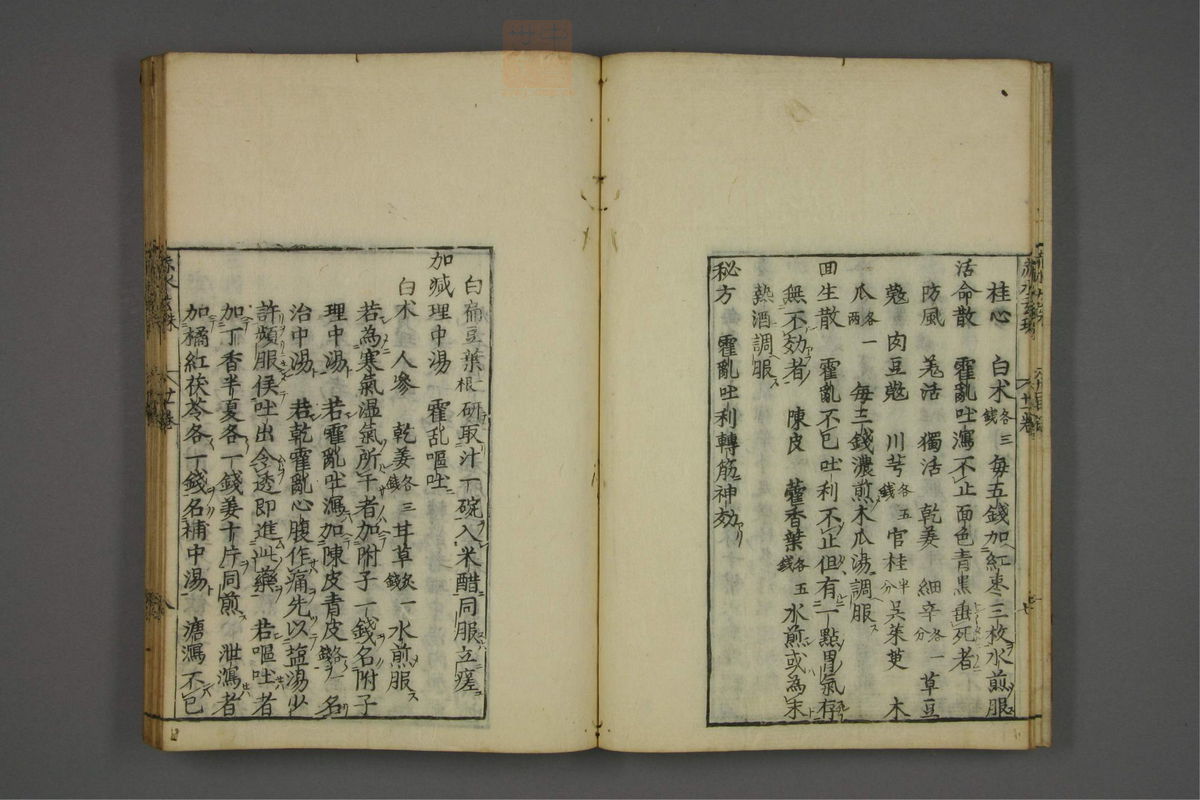 桂心　白朮各三錢　每五錢加紅棗三枚水煎服
活命散　霍亂吐瀉不止面色青黑垂死者
防風　羗活　獨活　乾姜　細辛各一分　草豆
蔲　肉豆蔲　川芎各五錢　官桂半分　呉茱萸　木
瓜各一兩　每二錢濃煎木瓜湯調服
囬生散　霍亂不已吐利不止但有一點胃氣存
無不効者　陳皮　藿香葉各五錢　水煎或為末
熱酒調服
秘方　霍亂吐利轉筋神効
白扁豆葉根研取汁一碗入米醋同服立瘥
加減理中湯　霍乱嘔吐
白朮　人參　乾姜各三錢　甘草炙一錢　水煎服
若為寒氣温氣所干者加附子一錢名附子
理中湯　若霍亂吐瀉加陳皮青皮各一錢名
治中湯　若乾霍亂心腹作痛先以塩湯少
許頻服俟吐出令透即進此藥　若嘔吐者
加丁香半夏各一錢姜十片同煎　泄瀉者
加橘紅茯苓各一錢名補中湯　溏瀉不已